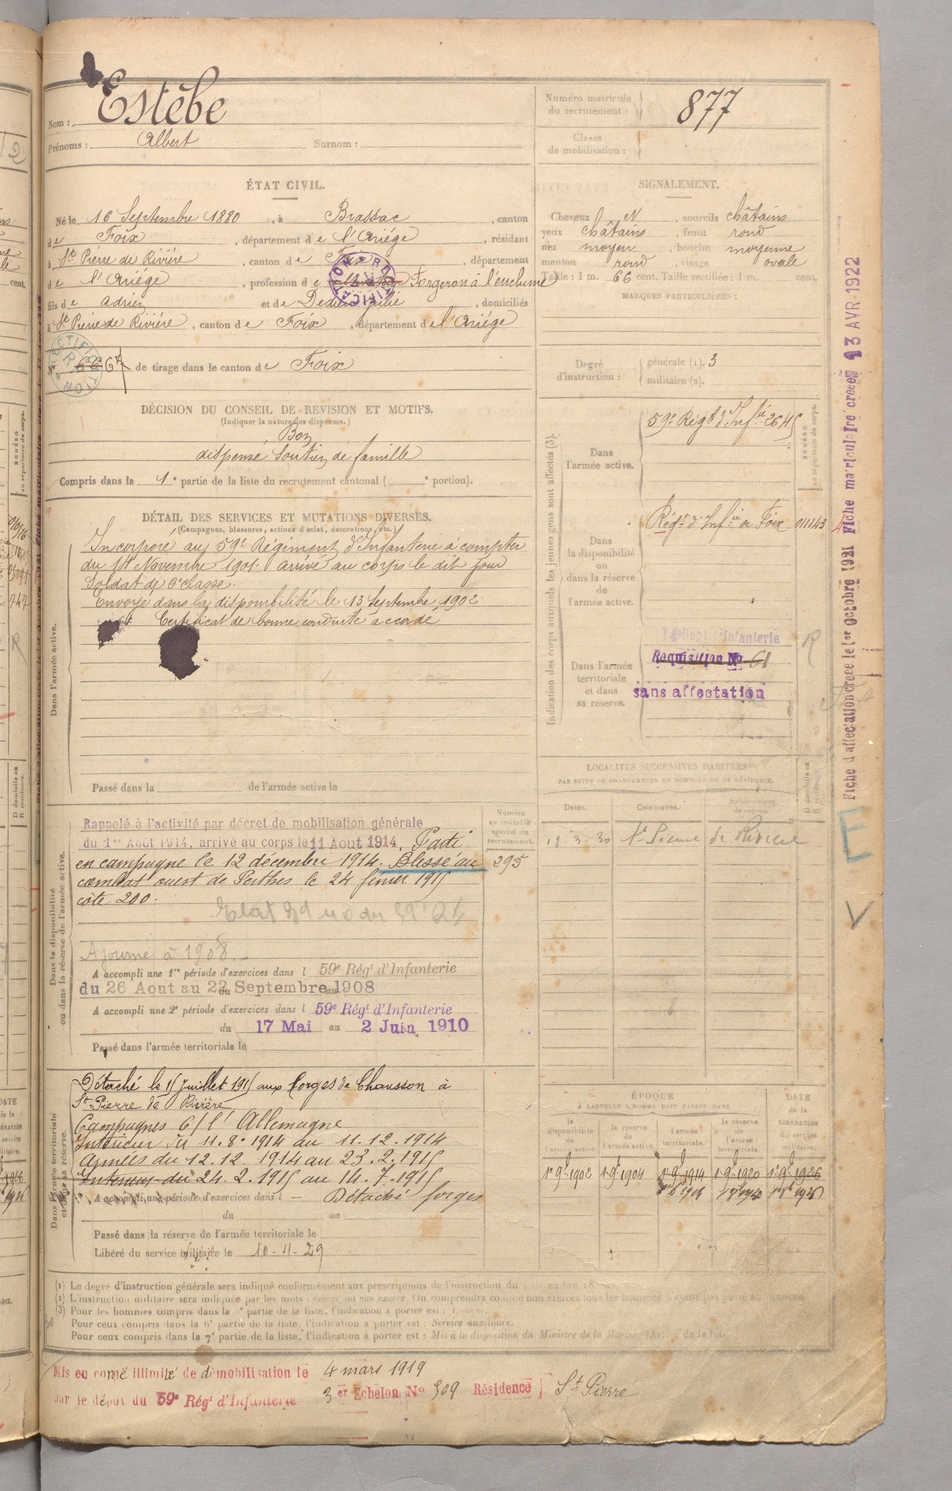 Nom : Estèbe
Prénoms : Albert Surnom :
Numéro matricule du recrutement : 877
Classe de mobilisation :
ÉTAT CIVIL.
Né le 16 Septembre 1880, à Brassac, canton
de Foix, département de l'Ariége, résidant
à St Pierre de Rivière, canton de Foix, département
de l'Ariége, profession de Forgeron à l'enclume
fils de Adrien et de , domiciliés
à St Pierre de Rivière, canton de Foix, département de l'Ariége
N° 67 de tirage dans le canton de Foix
SIGNALEMENT.
Cheveux N, sourcils châtains
yeux châtains, front rond
nez moyen, bouche moyenne
menton rond, visage ovale
Taille : 1 m. 66 cent. Taille rectifiée : 1 m. cent.
MARQUES PARTICULIÈRES :
Degré d'instruction : générale (1). 3
militaire (2).
DÉCISION DU CONSEIL DE REVISION ET MOTIFS.
(Indiquer la nature des dispenses.)
Bon
dispensé Soutien de famille
Compris dans la 1e partie de la liste du recrutement cantonal ( e portion).
DÉTAIL DES SERVICES ET MUTATIONS DIVERSES.
(Campagnes, blessures, actions d'éclat, décorations, etc.)
Dans l'armée active.
Incorporé au 59e Régiment d'Infanterie à compter
du Novembre 1901. arrivé au corps le dit jour
Soldat de 2e classe.
Envoyé dans la disponibilité le 13 Septembre 1902
Certificat de bonne conduite accordé
Passé dans la de l'armée active le
Indication des corps auxquels les jeunes gens sont affectés (3).
Dans l'armée active. 59e Régt d'Infrie
Dans la disponibilité ou dans la réserve de l'armée active. Régt d'Infrie de Foix 011143
Dans l'armée territoriale et dans sa réserve.
Régt d'Infanterie
Requisition No 61
sans affectation
R
Fiche d'affectation créée le 1er octobre 1921 Fiche matriculaire créée 13 AVR 1922
E
V
LOCALITÉS SUCCESSIVES HABITÉES
PAR SUITE DE CHANGEMENTS DE DOMICILE OU DE RÉSIDENCE.
Dates. Communes. Subdivisions de région. D domicile ou R résidence.
12. 3. 30 St Pierre de Rivière
Dans la disponibilité ou dans la réserve de l'armée active.
Numéro au contrôle spécial du recrutement. 295
Rappelé à l'activité par décret de mobilisation générale
du 1er Aout 1914, arrivé au corps le 11 Aout 1914. Parti
en campagne le 12 décembre 1914. Blessé au
combat ouest de Perthes le 24 février 1915
côte 200.
Ajourné à 1908.
A accompli une 1re période d'exercices dans l 59e Régt d'Infanterie
du 26 Aout au 22 Septembre 1908
A accompli une 2e période d'exercices dans l 59e Régt d'Infanterie
du 17 Mai au 2 Juin 1910
Passé dans l'armée territoriale le
Dans l'armée territoriale et dans sa réserve.
Détaché le 15 Juillet 1915 aux forges de Chausson à
St Pierre de Rivière
Campagnes C/ l'Allemagne
Intérieur du 11.8.1914 au 11.12.1914
Armées du 12.12.1914 au 23.2.1915
Intérieur du 24.2.1915 au 14.7.1915
A accompli une période d'exercices dans l Détaché forges
du au
Passé dans la réserve de l'armée territoriale le
Libéré du service militaire le 10-11-29
ÉPOQUE
À LAQUELLE L'HOMME DOIT PASSER DANS
la disponibilité de l'armée active. la réserve de l'armée active. l'armée territoriale. la réserve de l'armée territoriale.
DATE de la LIBÉRATION du service militaire.
1r 9b 1902 1r 9b 1904 1r 9b 1914 1r 9b 1920 1r 9b 1926
(1) Le degré d'instruction générale sera indiqué conformément aux prescriptions de l'instruction du
(2) L'instruction militaire sera indiquée par les mots : exercé, ou non exercé. On comprendra comme non exercés tous les hommes
(3) Pour les hommes compris dans la 1re partie de la liste, l'indication à porter est :
Pour ceux compris dans la 6e partie de la liste, l'indication à porter est : Service auxiliaire.
Pour ceux compris dans la 7e partie de la liste, l'indication à porter est : Mis à la disposition du Ministre de la Marine
Mis en congé illimité de démobilisation le 4 mars 1919
par le dépôt du 59e Régt d'Infanterie 3er Echelon No 509 Résidence } St Pierre